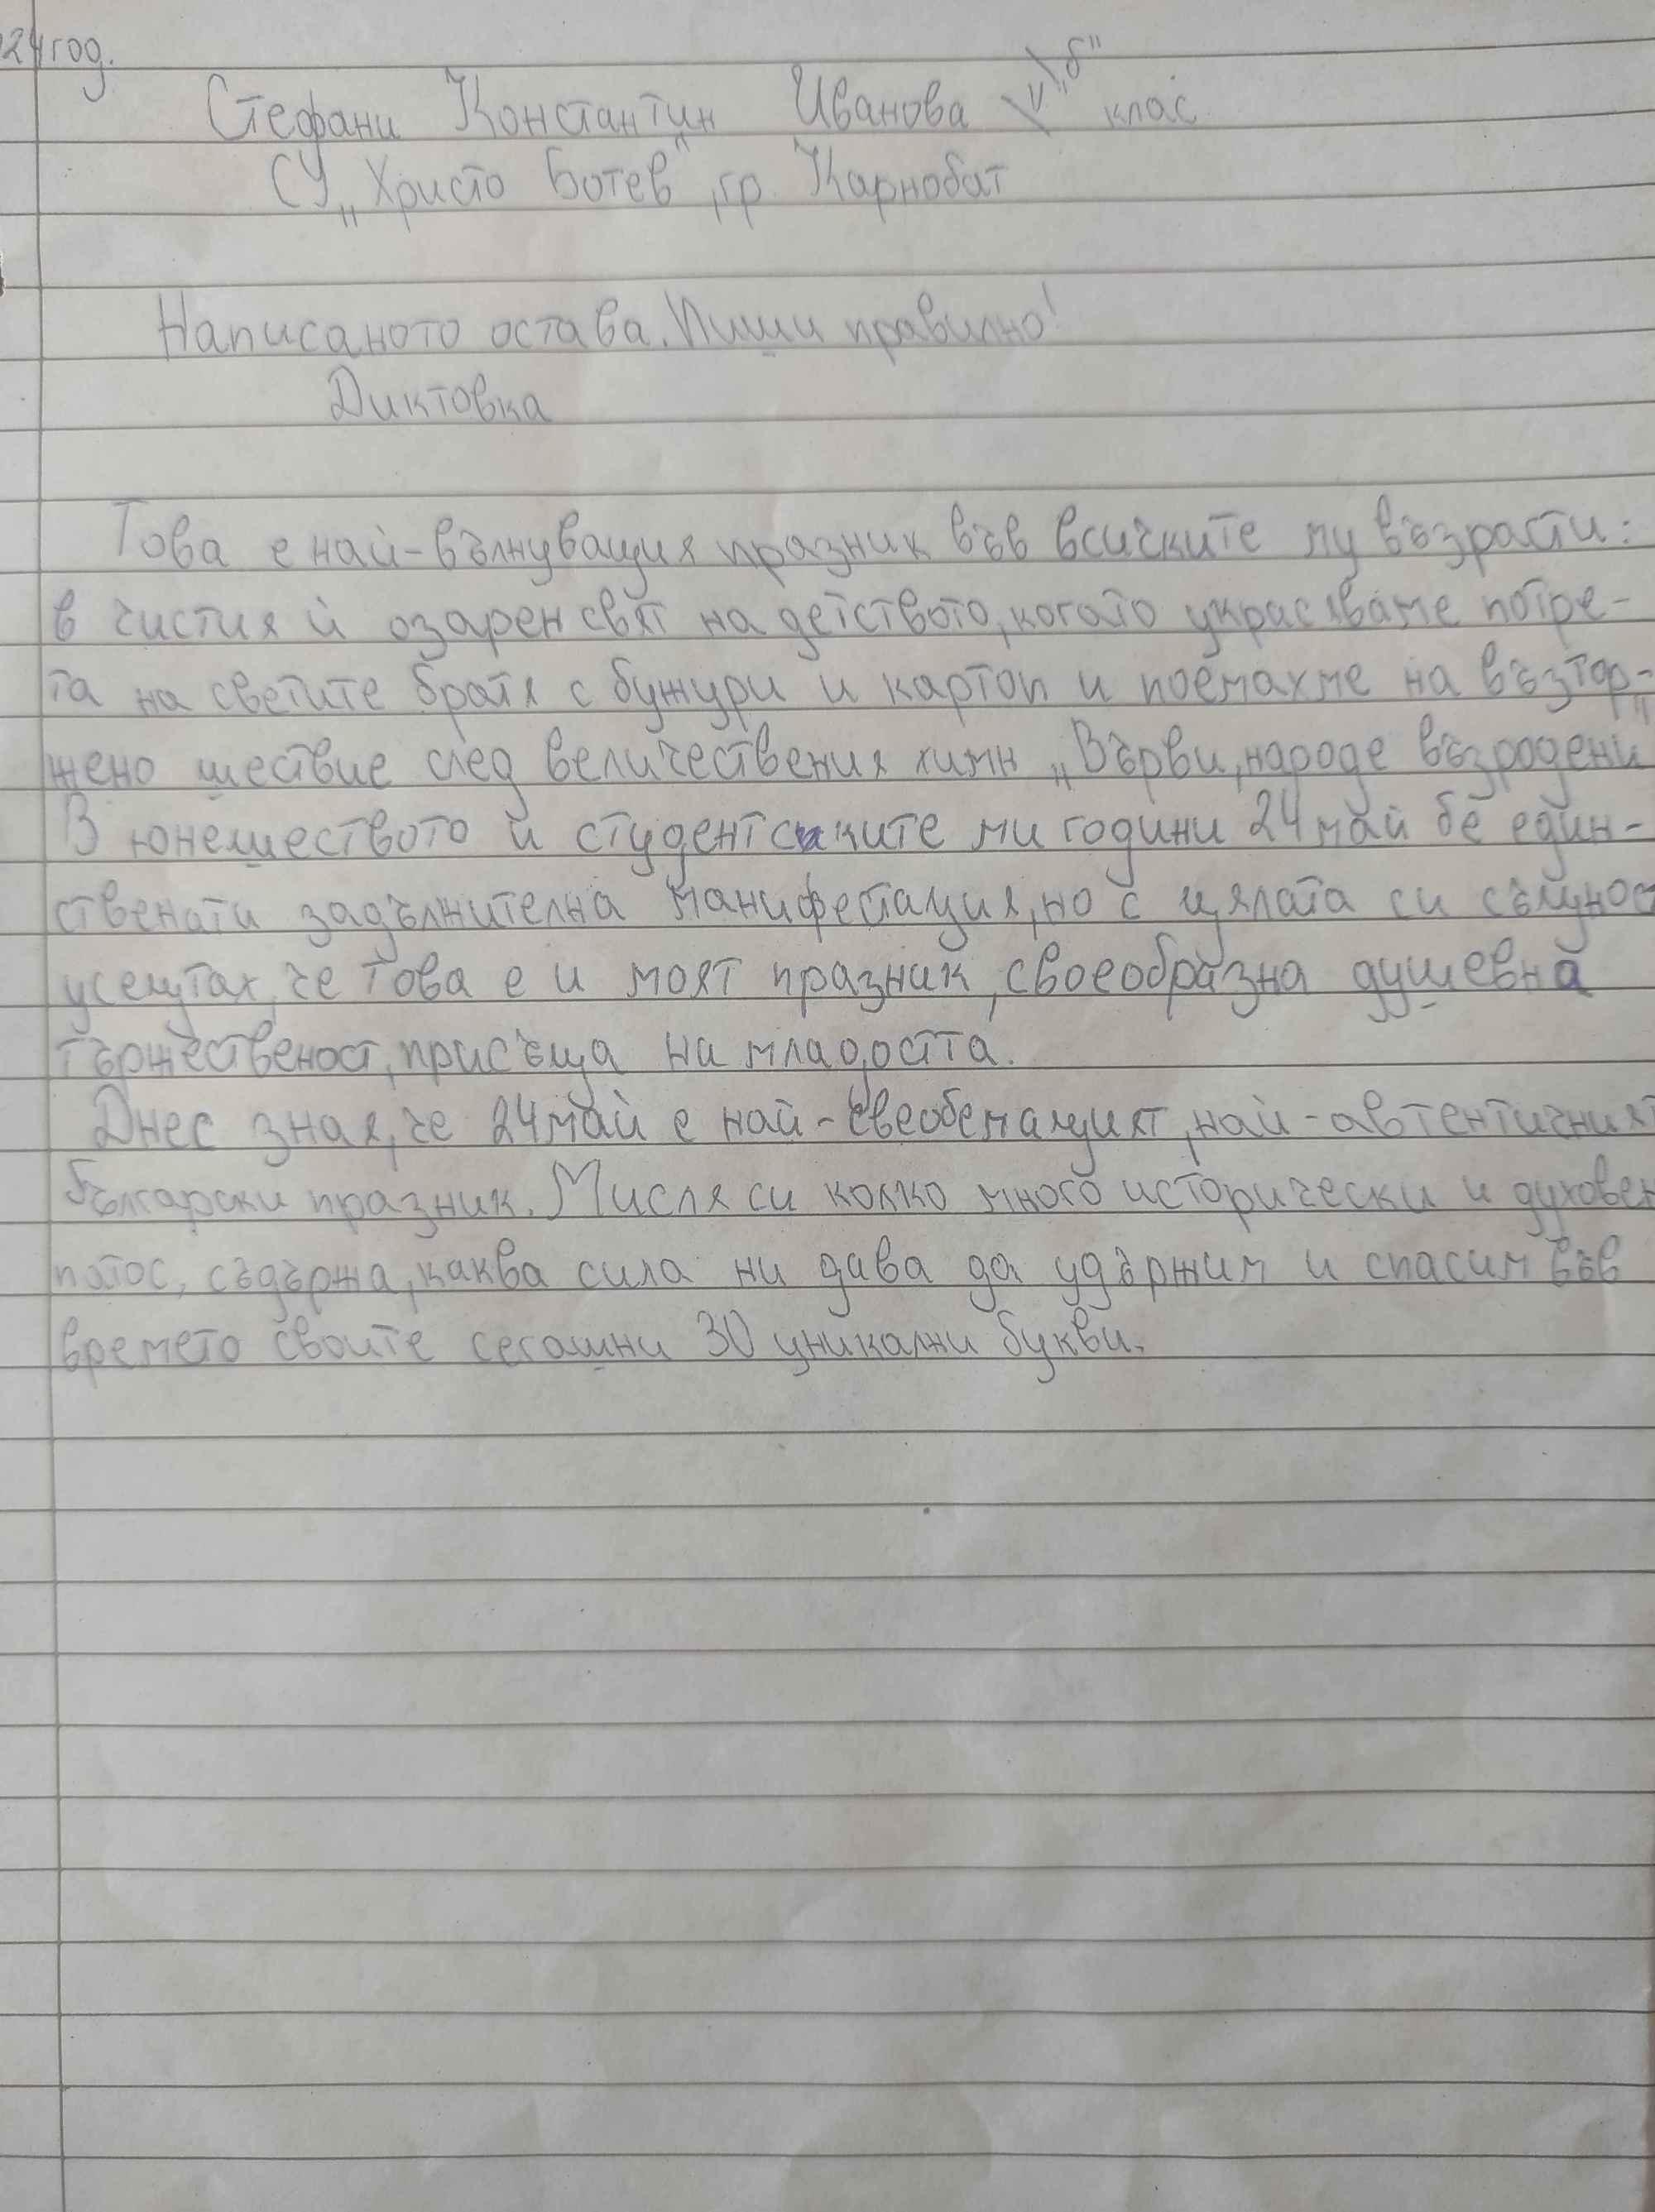 24 год.
Стефани Константин Иванова V "б" клас
СУ „Христо Ботев", гр. Карнобат
Написаното остава. Пиши правилно!
Диктовка
Това е най-вълнуващия празник във всичките му възрасти:
в чистия й озарен свят на детството, когато украсяваме потре-
та на светите братя с бужури и картоп и поемахме на възтор-
жено шествие след величествения химн „Върви, народе възродени"
В юнешеството й студентските ми години 24 май бе един-
ствената задължителна манифестация, но с цялата си същнос
усещтах, че това е и моят празник, своеобразна душевна
тържественост, присъща на младостта.
Днес зная, че 24 май е най-свеобемащият, най-автентичният
български празник. Мисля си колко много исторически и духовен
патос, съдържа, каква сила ни дава да удържим и спасим във
времето своите сегашни 30 уникални букви.